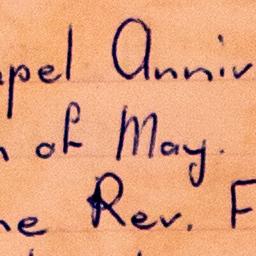 pel Anniv
of May.
he Rev. F